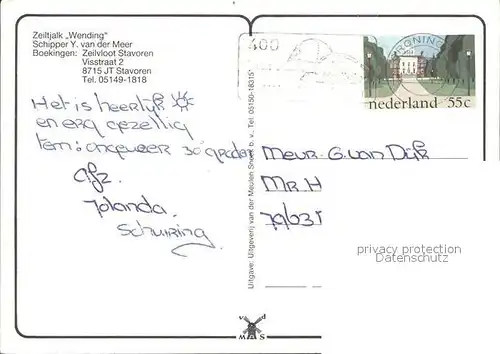 Zeiltjalk „Wending"
Schipper Y. van der Meer
Boekingen: Zeilvloot Stavoren
Visstraat 2
8715 JT Stavoren
Tel. 05149-1818
Het is heerlijk
en erg gezellig
tem: ongeveer 30 graden
Afz.
Jolanda.
Schuiring
Uitgave: Uitgeverij van der Meulen Sneek b.v. Tel. 05150-18315
400
GRONING
nederland 55c
Meur. G. van Dijk
MR H
7963
privacy protection
Datenschutz
v d
M S